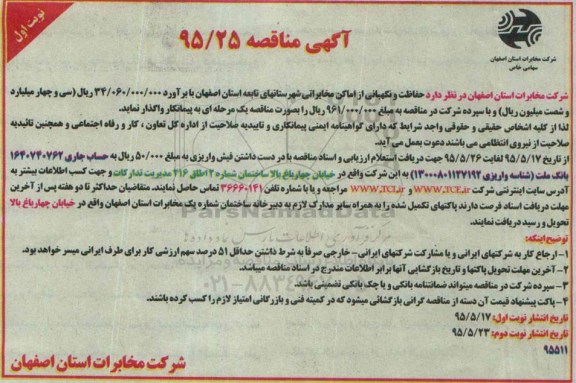 نوبت اول
شرکت مخابرات استان اصفهان
سهامی خاص
آگهی مناقصه ۹۵/۲۵
شرکت مخابرات استان اصفهان در نظر دارد حفاظت و نگهبانی از اماکن مخابراتی شهرستانهای تابعه استان اصفهان با برآورد ۳۴/۰۶۰/۰۰۰/۰۰۰ ریال (سی و چهار میلیارد
و شصت میلیون ریال) و با سپرده شرکت در مناقصه به مبلغ ۹۶۱/۰۰۰/۰۰۰ ریال را بصورت مناقصه یک مرحله ای به پیمانکار واگذار نماید.
لذا از کلیه اشخاص حقیقی و حقوقی واجد شرایط که دارای گواهینامه ایمنی پیمانکاری و تاییدیه صلاحیت از اداره کل تعاون ، کار و رفاه اجتماعی و همچنین تائیدیه
صلاحیت از نیروی انتظامی می باشند دعوت بعمل می آید.
از تاریخ ۹۵/۵/۱۷ لغایت ۹۵/۵/۲۶ جهت دریافت استعلام ارزیابی و اسناد مناقصه با در دست داشتن فیش واریزی به مبلغ ۵۰/۰۰۰ ریال به حساب جاری ۱۶۴۰۷۴۰۷۶۲
بانک ملت (شناسه واریزی ۱۳۰۰۰۸۰۱۱۲۷۱۹۲) به این شرکت واقع در خیابان چهارباغ بالا ساختمان شماره ۲ اطاق ۲۱۶ مدیریت تدارکات و جهت کسب اطلاعات بیشتر به
آدرس سایت اینترنتی شرکت WWW.TCI.ir و WWW.TCE.ir مراجعه و یا با شماره تلفن ۳۶۶۶۰۱۴۱ تماس حاصل نمایند. متقاضیان حداکثر تا دو هفته پس از آخرین
مهلت دریافت اسناد فرصت دارند پاکتهای تکمیل شده را به همراه سایر مدارک لازم به دبیرخانه ساختمان شماره یک مخابرات استان اصفهان واقع در خیابان چهارباغ بالا
تحویل و رسید دریافت نمایند.
توضیح اینکه:
۱- ارجاع کار به شرکتهای ایرانی و یا مشارکت شرکتهای ایرانی- خارجی صرفاً به شرط داشتن حداقل ۵۱ درصد سهم ارزشی کار برای طرف ایرانی میسر خواهد بود.
۲- آخرین مهلت تحویل پاکتها و تاریخ بازگشایی آنها برابر اطلاعات مندرج در اسناد مناقصه میباشد.
۳- سپرده شرکت در مناقصه میتواند ضمانتنامه بانکی و یا چک بانکی تضمینی باشد.
۴- پاکت پیشنهاد قیمت آن دسته از مناقصه گرانی بازگشائی میشود که در کمیته فنی و بازرگانی امتیاز لازم را کسب کرده باشند.
تاریخ انتشار نوبت اول: ۹۵/۵/۱۷
تاریخ انتشار نوبت دوم: ۹۵/۵/۲۳
۹۵۵۱۱
شرکت مخابرات استان اصفهان
ParsNamadData